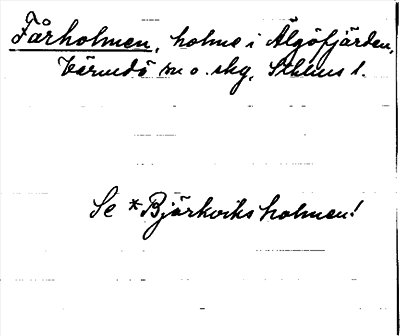 Fårholmen, holme i Älgöfjärden,
Värmdö sn o. skg, Sthlms l.
Se *Björkviksholmen!